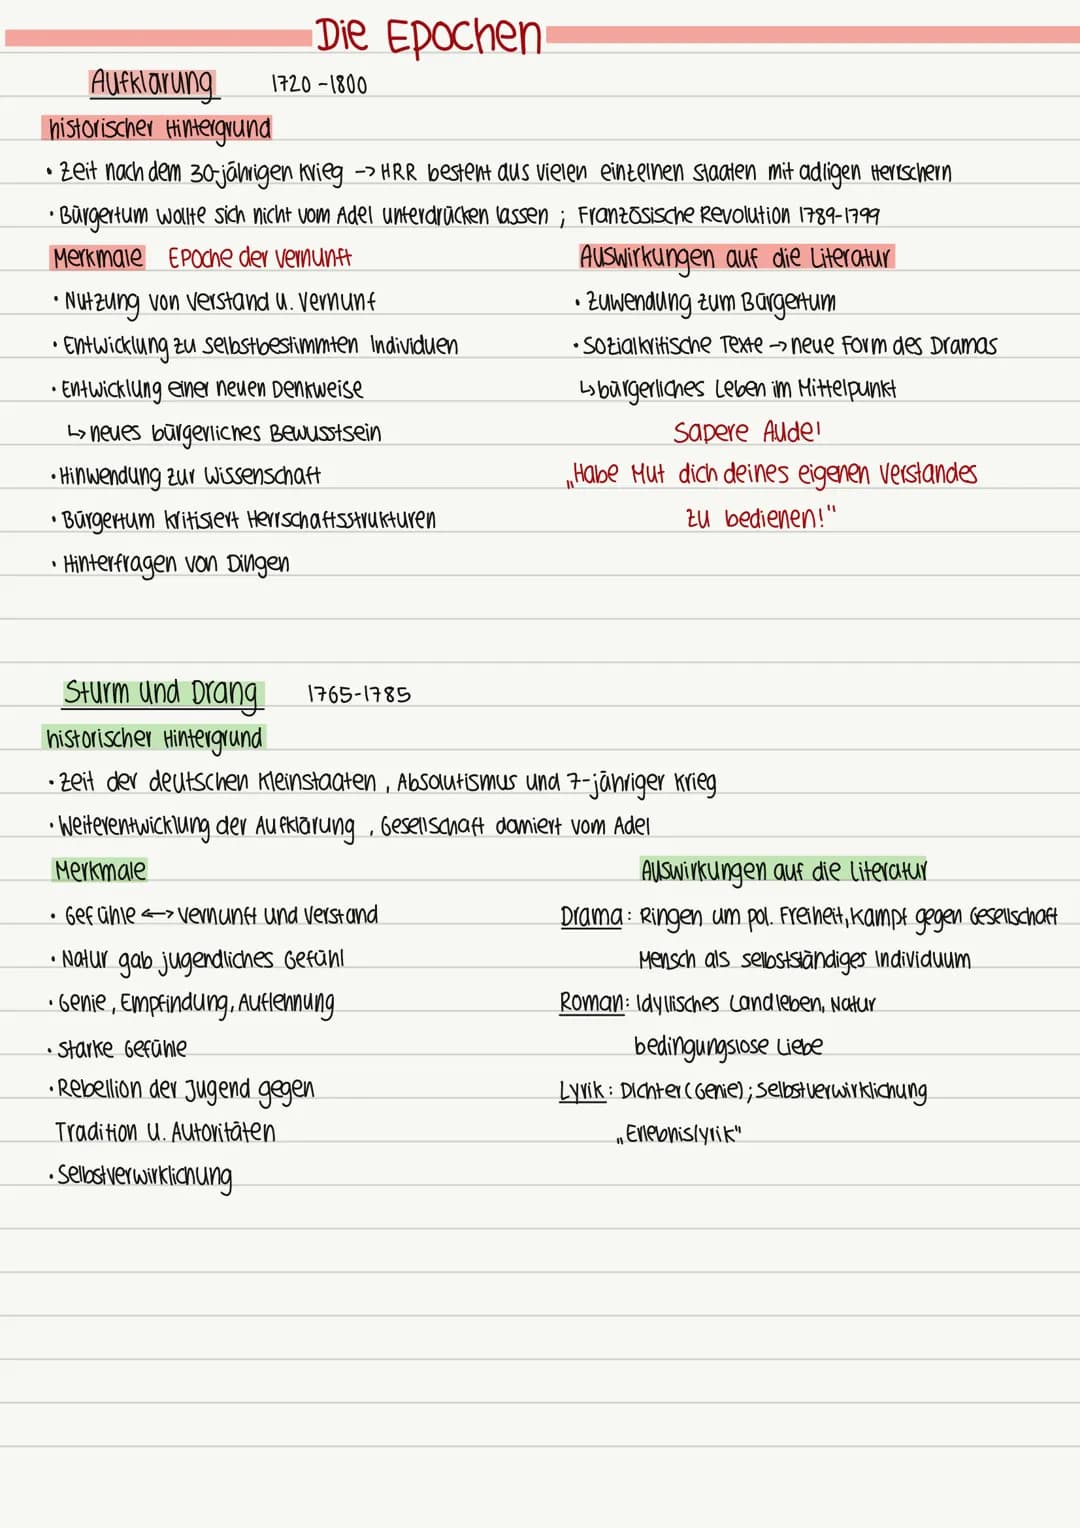 Die Epochen
Aufklärung 1720-1800
historischer Hintergrund
• Zeit nach dem 30-jährigen Krieg -> HRR besteht aus vielen einzelnen Staaten mit adligen Herrschern
• Bürgertum wollte sich nicht vom Adel unterdrücken lassen ; Französische Revolution 1789-1799
Merkmale Epoche der Vernunft
• Nutzung von Verstand u. Vernunf
• Entwicklung zu selbstbestimmten Individuen
• Entwicklung einer neuen Denkweise
↳ neues bürgerliches Bewusstsein
• Hinwendung zur Wissenschaft
• Bürgertum kritisiert Herrschaftsstrukturen
• Hinterfragen von Dingen
Auswirkungen auf die Literatur
• Zuwendung zum Bürgertum
• Sozialkritische Texte → neue Form des Dramas
↳ bürgerliches Leben im Mittelpunkt
Sapere Aude!
„Habe Mut dich deines eigenen Verstandes
zu bedienen!"
Sturm und Drang 1765-1785
historischer Hintergrund
• Zeit der deutschen Kleinstaaten , Absolutismus und 7-jähriger Krieg
• Weiterentwicklung der Aufklärung , Gesellschaft domiert vom Adel
Merkmale
• Gefühle <-> Vernunft und Verstand
• Natur gab jugendliches Gefühl
• Genie, Empfindung, Auflehnung
• starke Gefühle
• Rebellion der Jugend gegen
Tradition u. Autoritäten
• Selbstverwirklichung
Auswirkungen auf die Literatur
Drama: Ringen um pol. Freiheit, Kampf gegen Gesellschaft
Mensch als selbstständiges Individuum
Roman: Idyllisches Landleben, Natur
bedingungslose Liebe
Lyrik: Dichter (Genie); Selbstverwirklichung
„Erlebnislyrik"